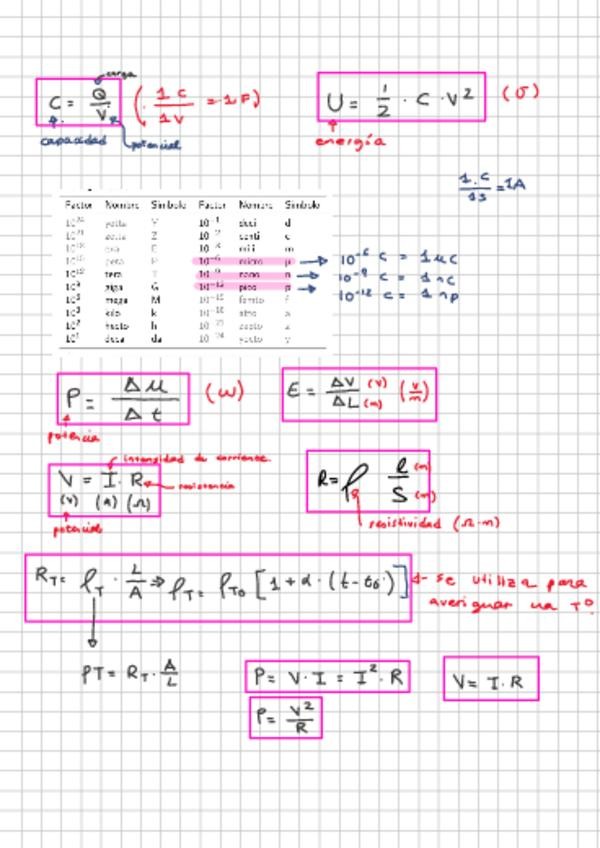 carga
C = Q/V (1C/1V = 1F)
capacidad potencial
U = 1/2 · C · V² (J)
energía
1.C/1s = 1A
Factor Nombre Símbolo Factor Nombre Símbolo
10²⁴ yotta Y 10⁻¹ deci d
10²¹ zetta Z 10⁻² centi c
10¹⁸ exa E 10⁻³ mili m
10¹⁵ peta P 10⁻⁶ micro μ → 10⁻⁶ C = 1 μC
10¹² tera T 10⁻⁹ nano n → 10⁻⁹ C = 1 nC
10⁹ giga G 10⁻¹² pico p → 10⁻¹² C = 1 np
10⁶ mega M 10⁻¹⁵ femto f
10³ kilo k 10⁻¹⁸ atto a
10² hecto h 10⁻²¹ zepto z
10¹ deca da 10⁻²⁴ yocto y
P = Δu/Δt (w)
potencia
E = ΔV (v)/ΔL (m) (v/m)
intensidad de corriente
V = I · R resistencia
(v) (A) (Ω)
potencial
R = ρ l (m)/S (m)
resistividad (Ω·m)
R_T = ρ_T · L/A ⇒ ρ_T = ρ_T₀ [1 + α · (t - t₀)] se utiliza para
averiguar una Tº
ρT = R_T · A/L
P = V · I = I² · R
V = I · R
P = V²/R